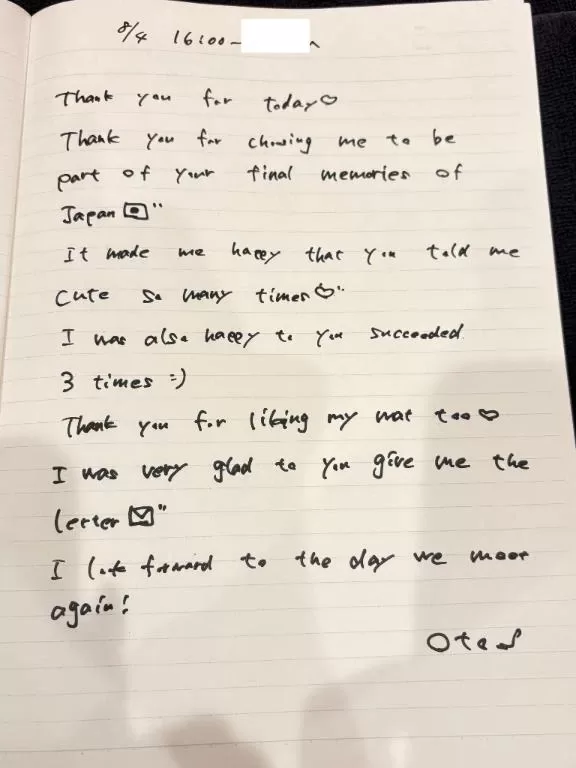 8/4 16:00~
Thank you for today♡
Thank you for chosing me to be
part of your final memories of
Japan 🇯🇵"
It made me happy that you told me
cute so many times♡"
I was also happy to you succeeded
3 times :)
Thank you for liking my wat too♡
I was very glad to you give me the
letter ✉"
I look forward to the day we meet
again!